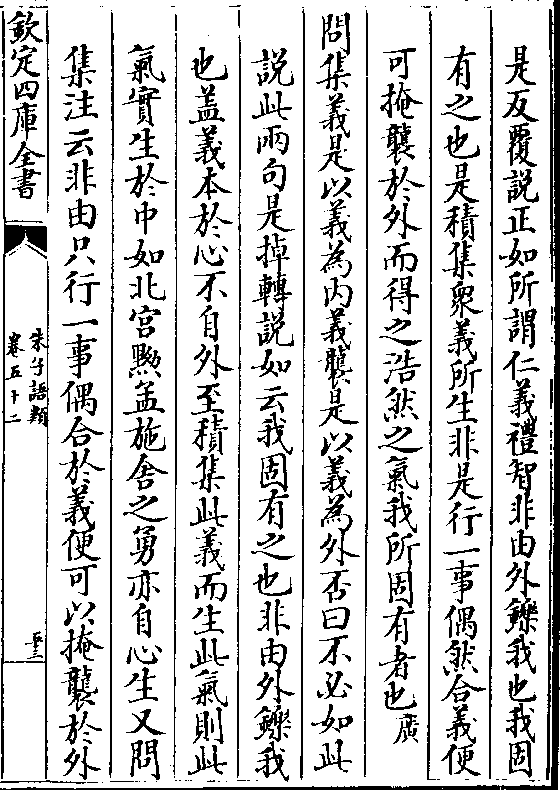 是反覆說正如所謂仁義禮智非由外鑠我也我固
有之也是積集衆義所生非是行一事偶然合義便
可掩襲於外而得之浩然之氣我所固有者也廣
問集義是以義為内義襲是以義為外否曰不必如此
說此兩句是掉轉說如云我固有之也非由外鑠我
也盖義本於心不自外至積集此義而生此氣則此
氣實生於中如北宫黝孟施舍之勇亦自心生又問
集注云非由只行一事偶合於義便可以掩襲於外
欽定四庫全書
朱子語類
卷五十二